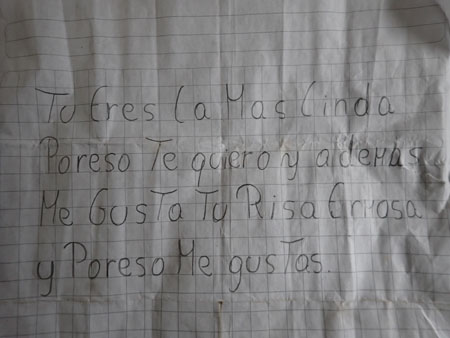 Tu Eres La Mas Linda
Poreso Te quiero y ademas
Me Gusta Tu Risa Ermosa
y Poreso Me gustas.